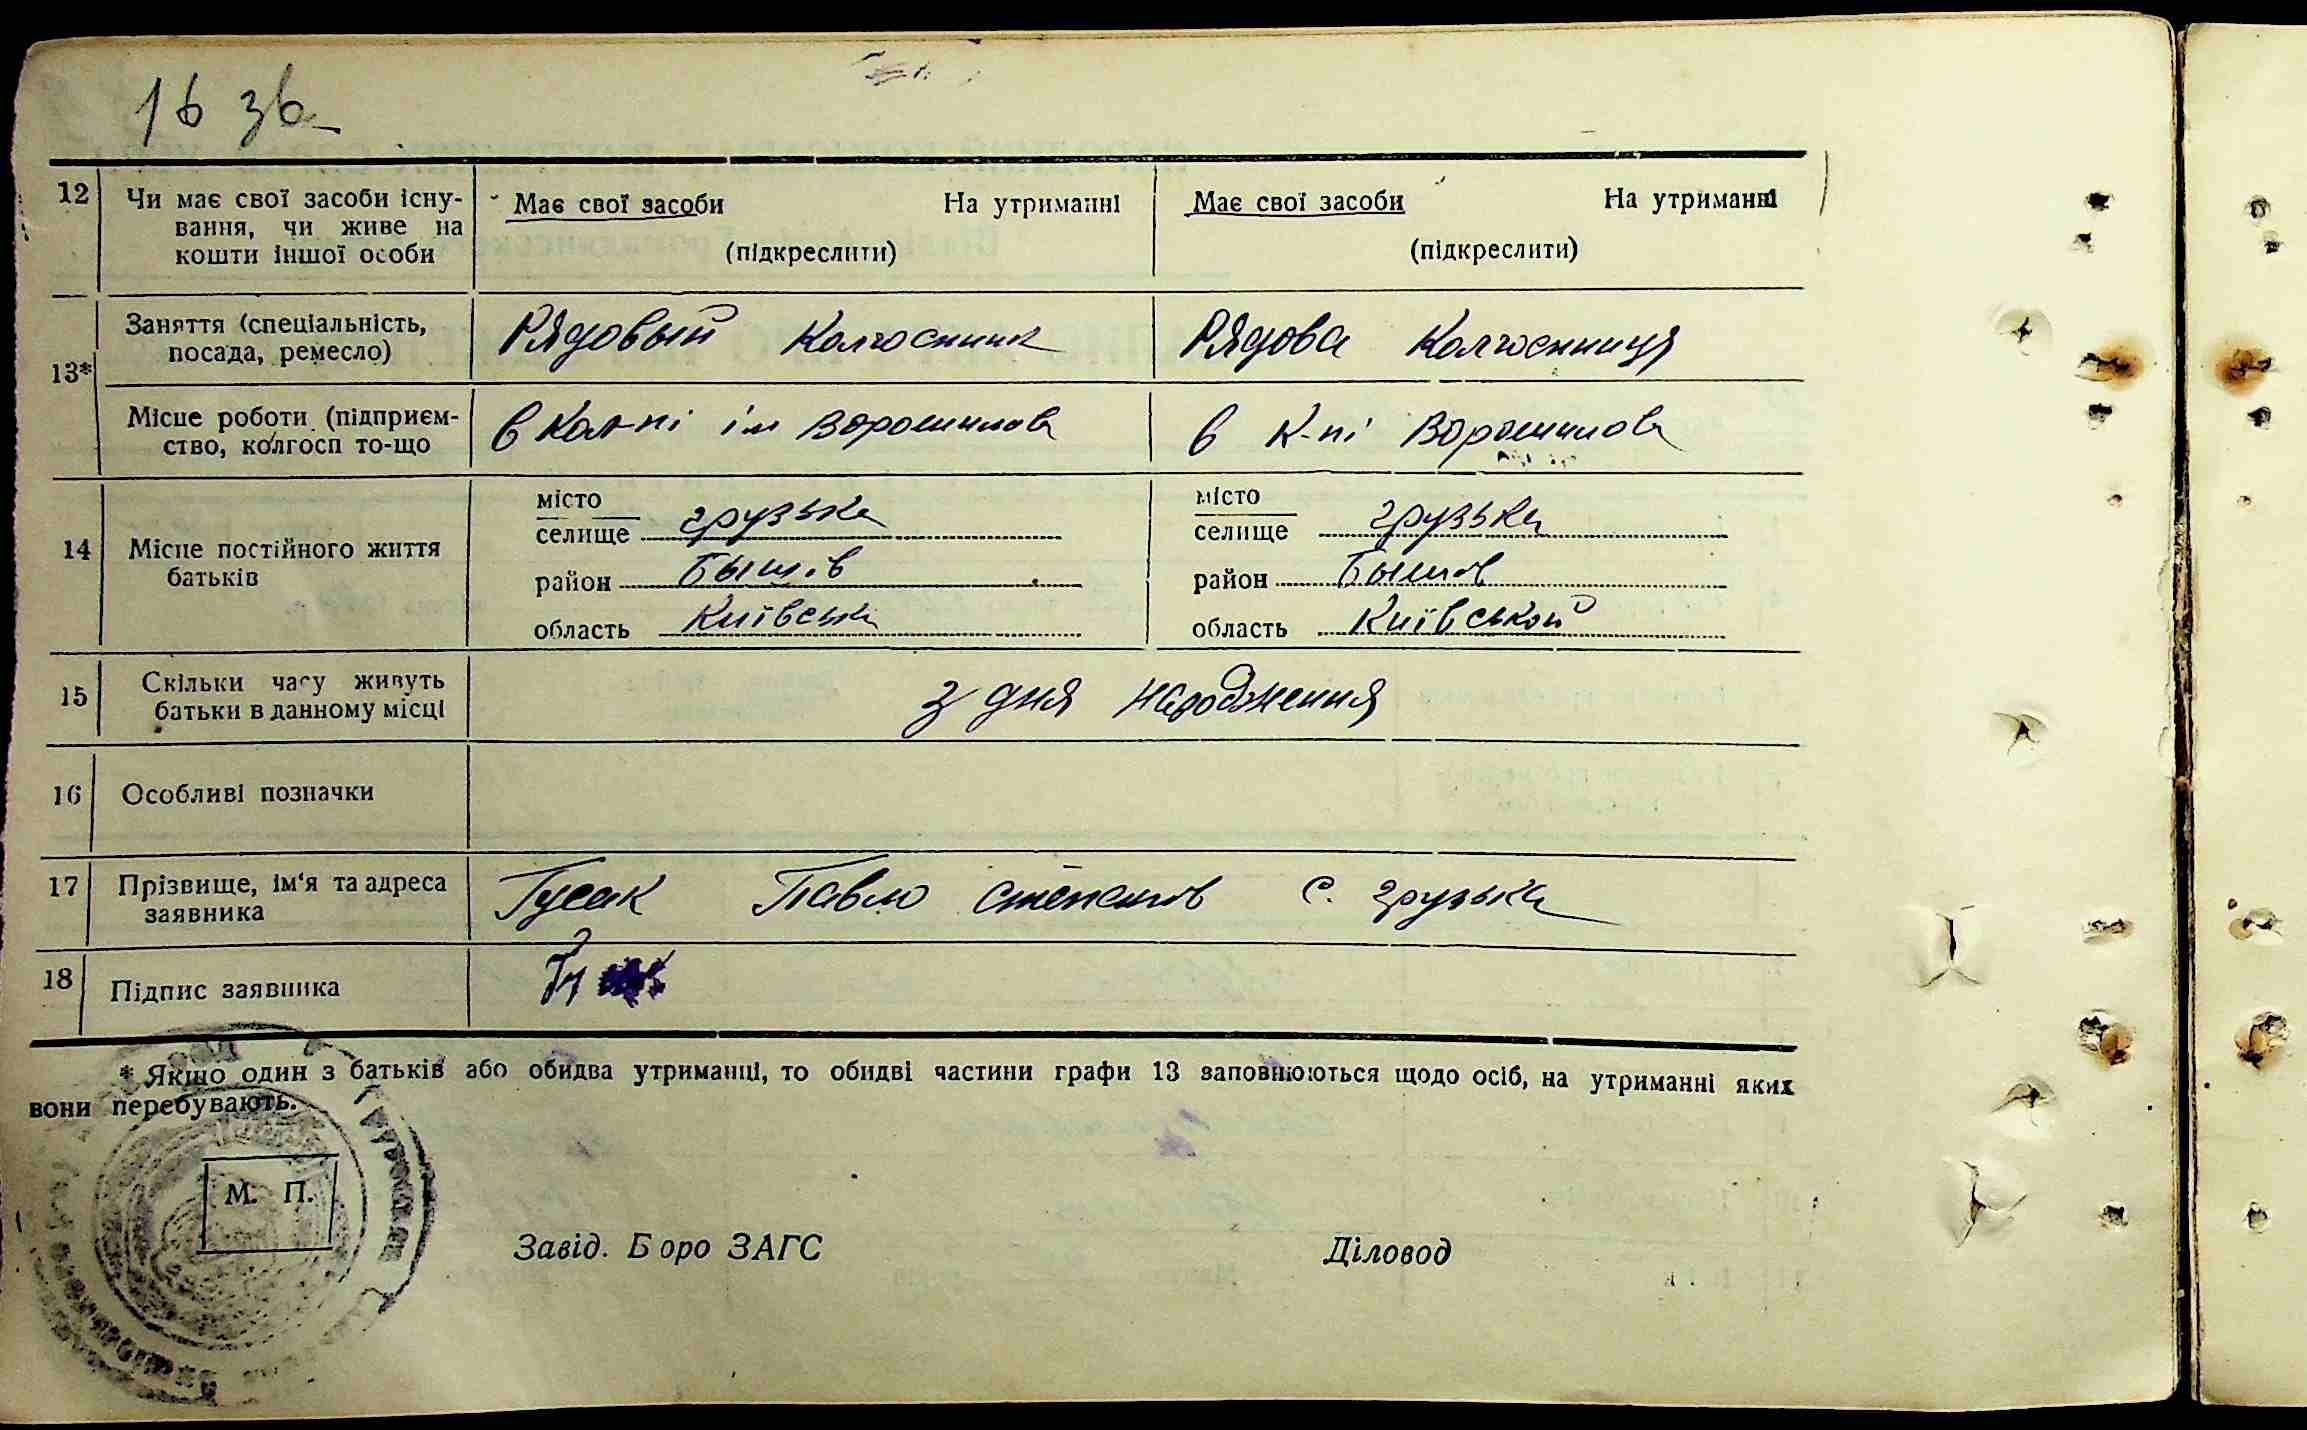 16 зв.
12 Чи має свої засоби існу- Має свої засоби На утриманні Має свої засоби На утриманні
вання, чи живе на
кошти іншої особи (підкреслити) (підкреслити)
13* Заняття (спеціальність, Рядовый Колгоспник Рядова Колгоспниця
посада, ремесло)
Місце роботи (підприєм- в кол-пі ім Ворошилова в к-пі Ворошилова
ство, колгосп то-що
14 Місце постійного життя
батьків
місто місто
селище грузька селище грузька
район Бышів район Бышов
область Київська область Київськой
15 Скільки часу живуть з дня народження
батьки в данному місці
16 Особливі позначки
17 Прізвище, ім'я та адреса Гусак Павло степанов с. грузька
заявника
18 Підпис заявника
* Якщо один з батьків або обидва утриманці, то обидві частини графи 13 заповнюються щодо осіб, на утриманні яких
вони перебувають.
М. П.
Завід. Б оро ЗАГС Діловод